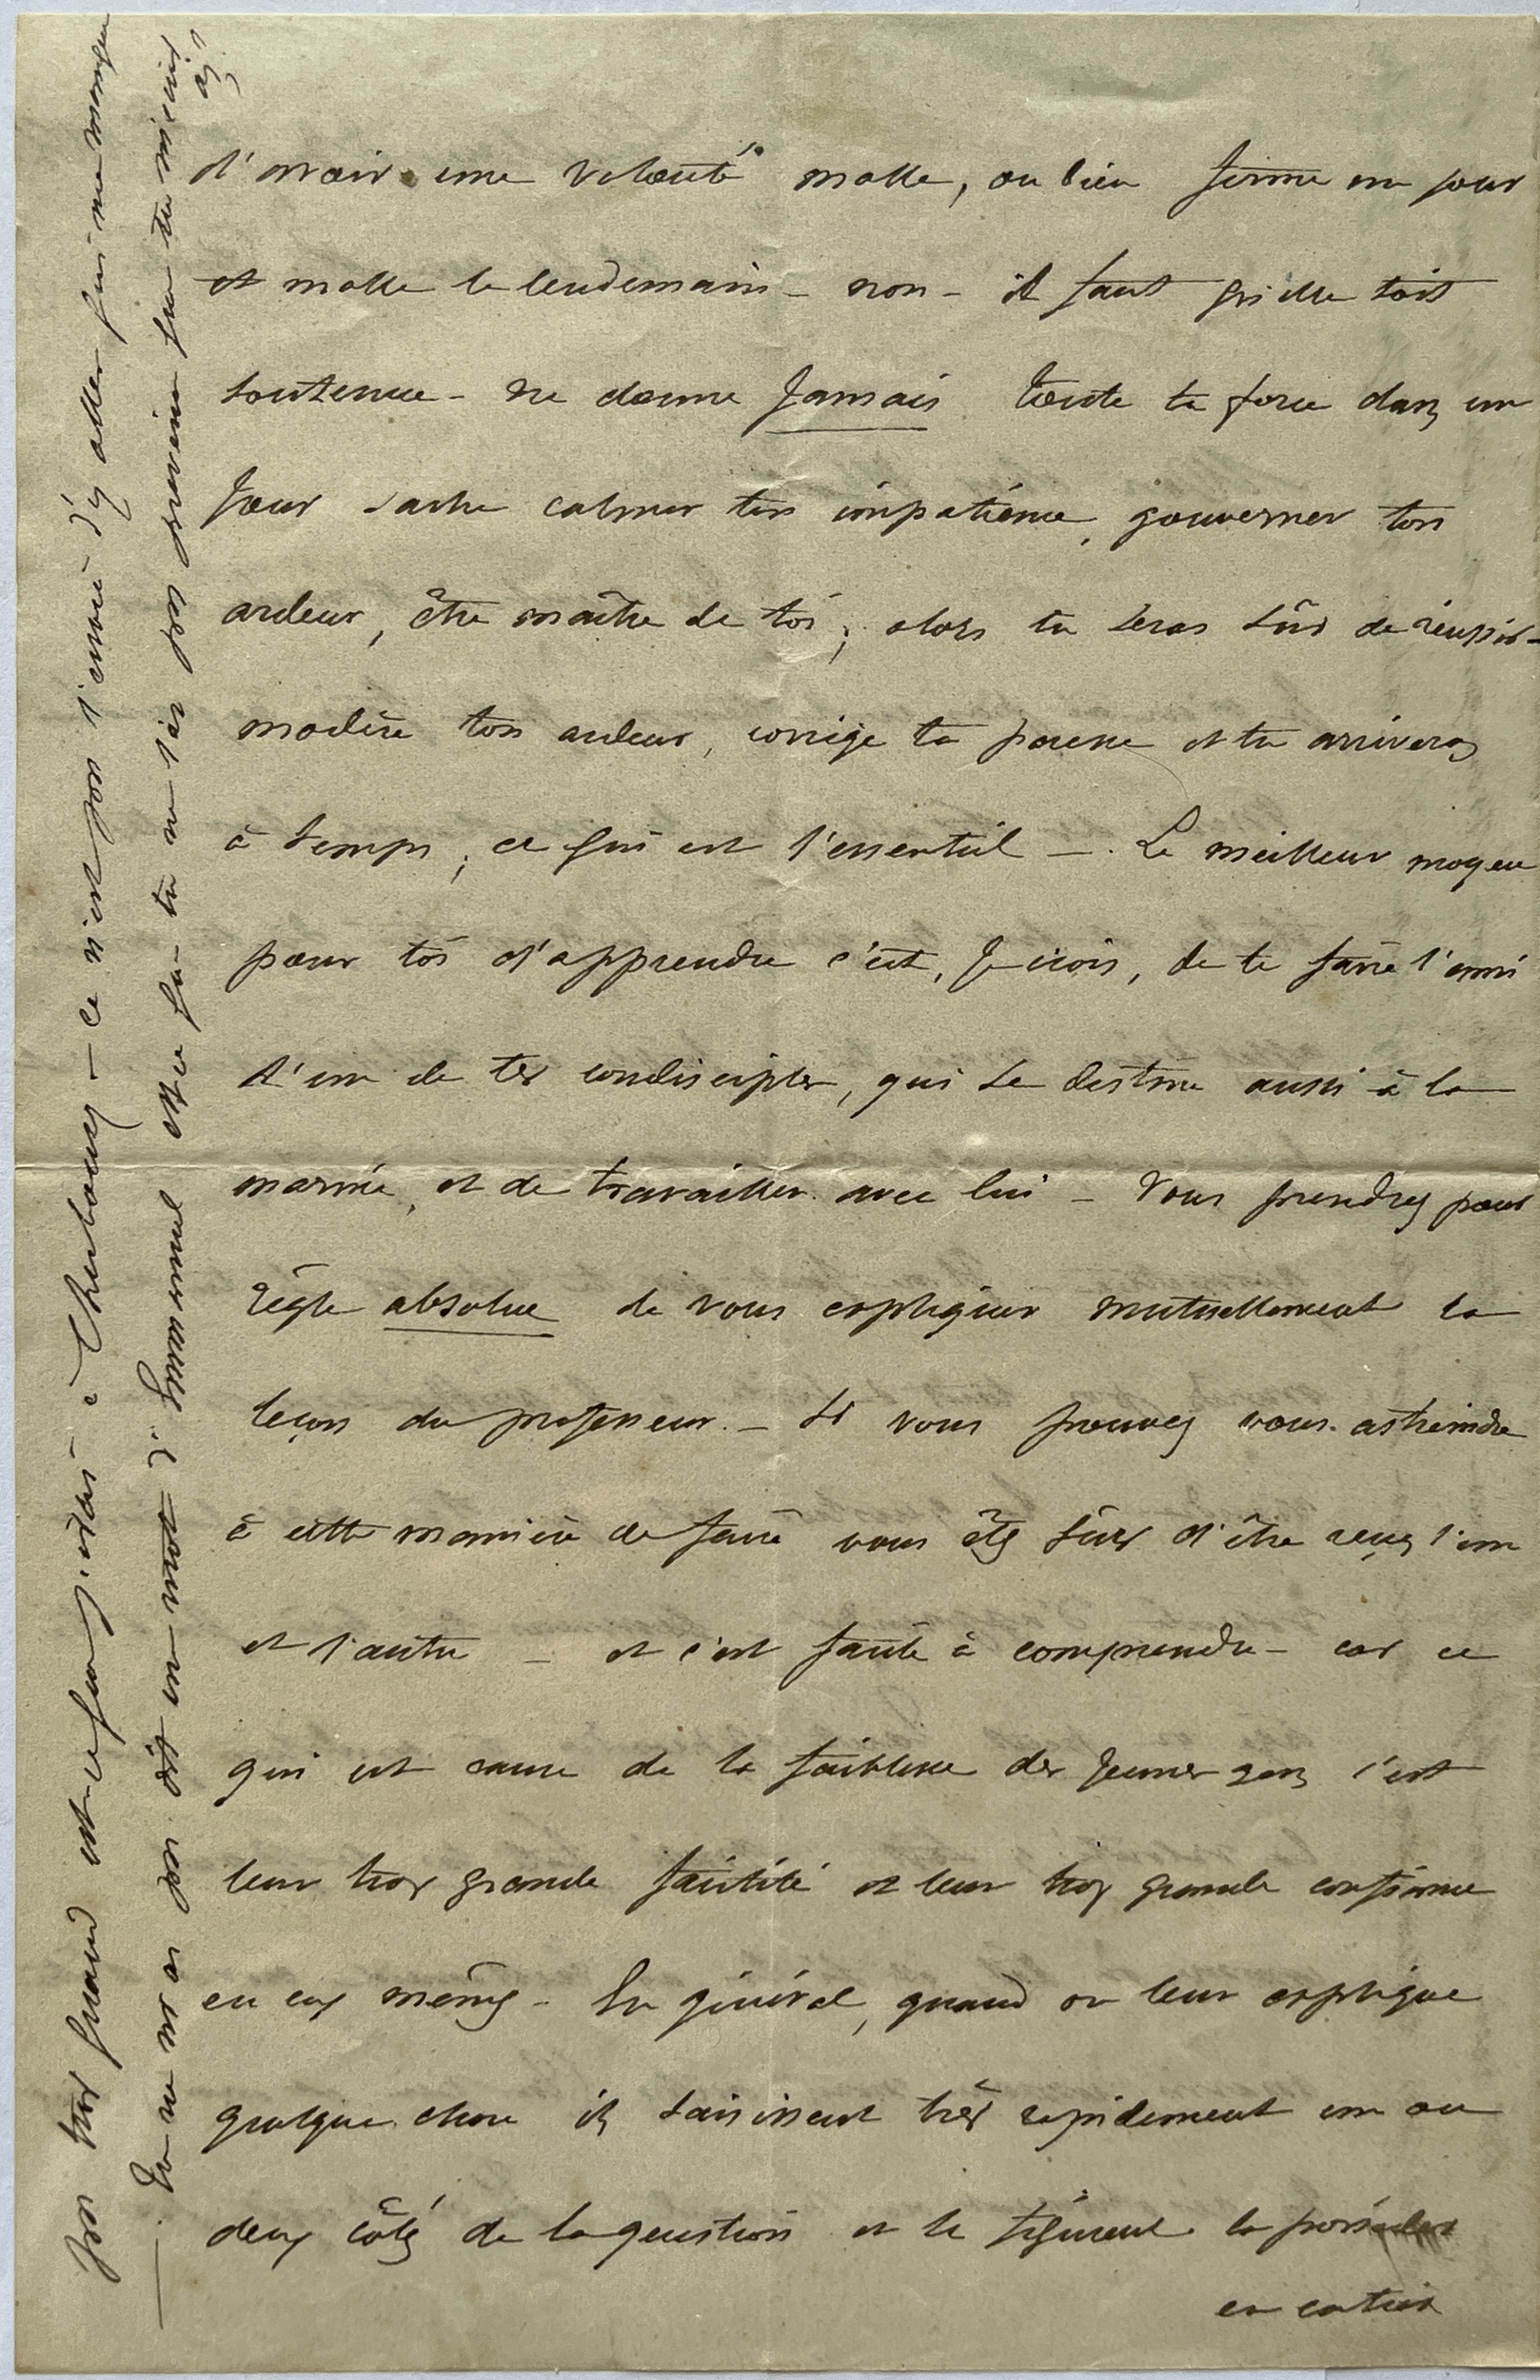 d'avoir une volonté molle, ou bien ferme un jour
et molle le lendemain - non - il faut qu'elle soit
soutenue - ne donne jamais toute ta force dans un
jour sache calmer ton impatience, gouverner ton
ardeur, être maître de toi ; alors tu seras sûr de réussir -
modère ton ardeur, corrige ta paresse et tu arriveras
à temps, ce qui est l'essentiel - . Le meilleur moyen
pour toi d'apprendre c'est, je crois, de te faire l'ami
d'un de tes condisciples, qui se destine aussi à la
marine, et de travailler avec lui - Vous prendrez pour
règle absolue de vous expliquer mutuellement la
leçon du professeur. - Si vous pouvez vous astreindre
à cette manière de faire vous êtes sûrs d'être reçus l'un
et l'autre - et c'est facile à comprendre - car ce
qui est cause de la faiblesse des jeunes gens c'est
leur trop grande facilité et leur trop grande confiance
en eux mêmes - En général, quand on leur explique
quelque chose ils saisissent très rapidement un ou
deux côtés de la question et se figurent la posséder
en entier
pas trop quand est-ce que j'irai à Cherbourg - ce n'est pas l'envie d'y aller qui me manque
- Tu ne m'as pas dit un mot d'Emmanuel est-ce que tu ne l'as pas prévenu que tu m'écrivais